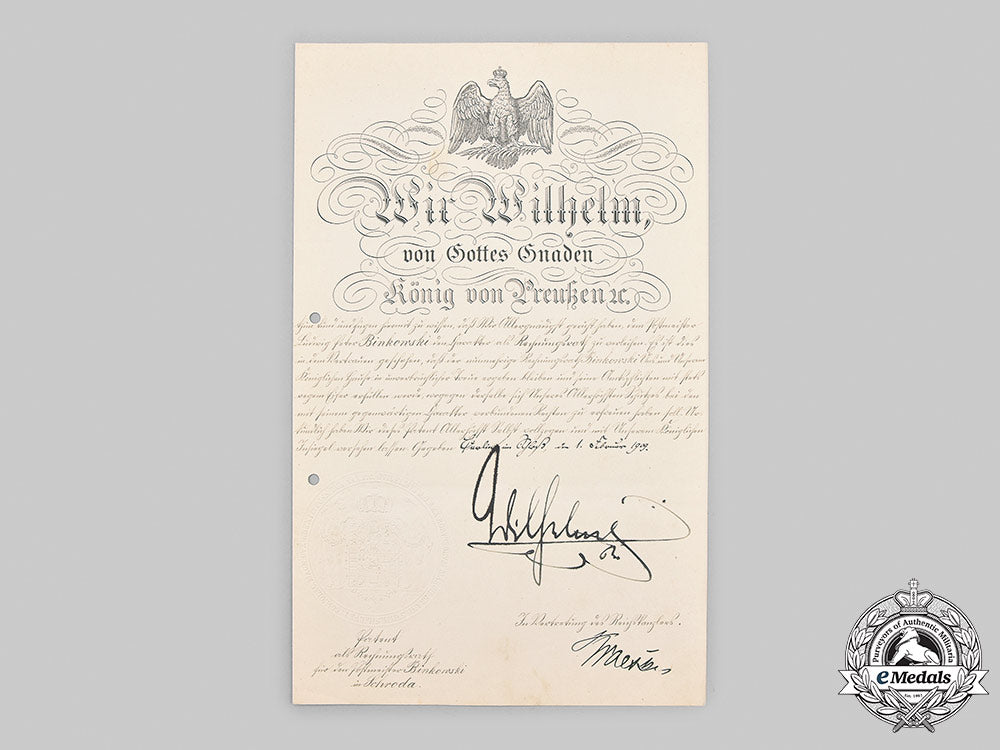 Wir Wilhelm,
von Gottes Gnaden
König von Preußen ꝛc.
thun kund und fügen hiermit zu wissen, daß Wir Allergnädigst geruht haben, dem Postmeister
Ludwig Peter Binkowski den Charakter als Rechnungsrath zu verleihen. Es ist dies
in dem Vertrauen geschehen, daß der nunmehrige Rechnungsrath Binkowski Uns und Unserem
Königlichen Hause in unverbrüchlicher Treue ergeben bleiben und seine Amtspflichten mit stets
regem Eifer erfüllen werde, wogegen derselbe sich Unseres Allerhöchsten Schutzes bei den
mit seinem gegenwärtigen Charakter verbundenen Rechten zu erfreuen haben soll. Ur-
kundlich haben Wir dieses Patent Allerhöchst Selbst vollzogen und mit Unserem Königlichen
Insiegel versehen lassen. Gegeben Berlin im Schloß, den 1. Februar
Wilhelm
In Vertretung des Reichskanzlers.
Patent
als Rechnungsrath
für den Postmeister Binkowski
in Schroda.
Purveyors of Authentic Militaria
eMedals